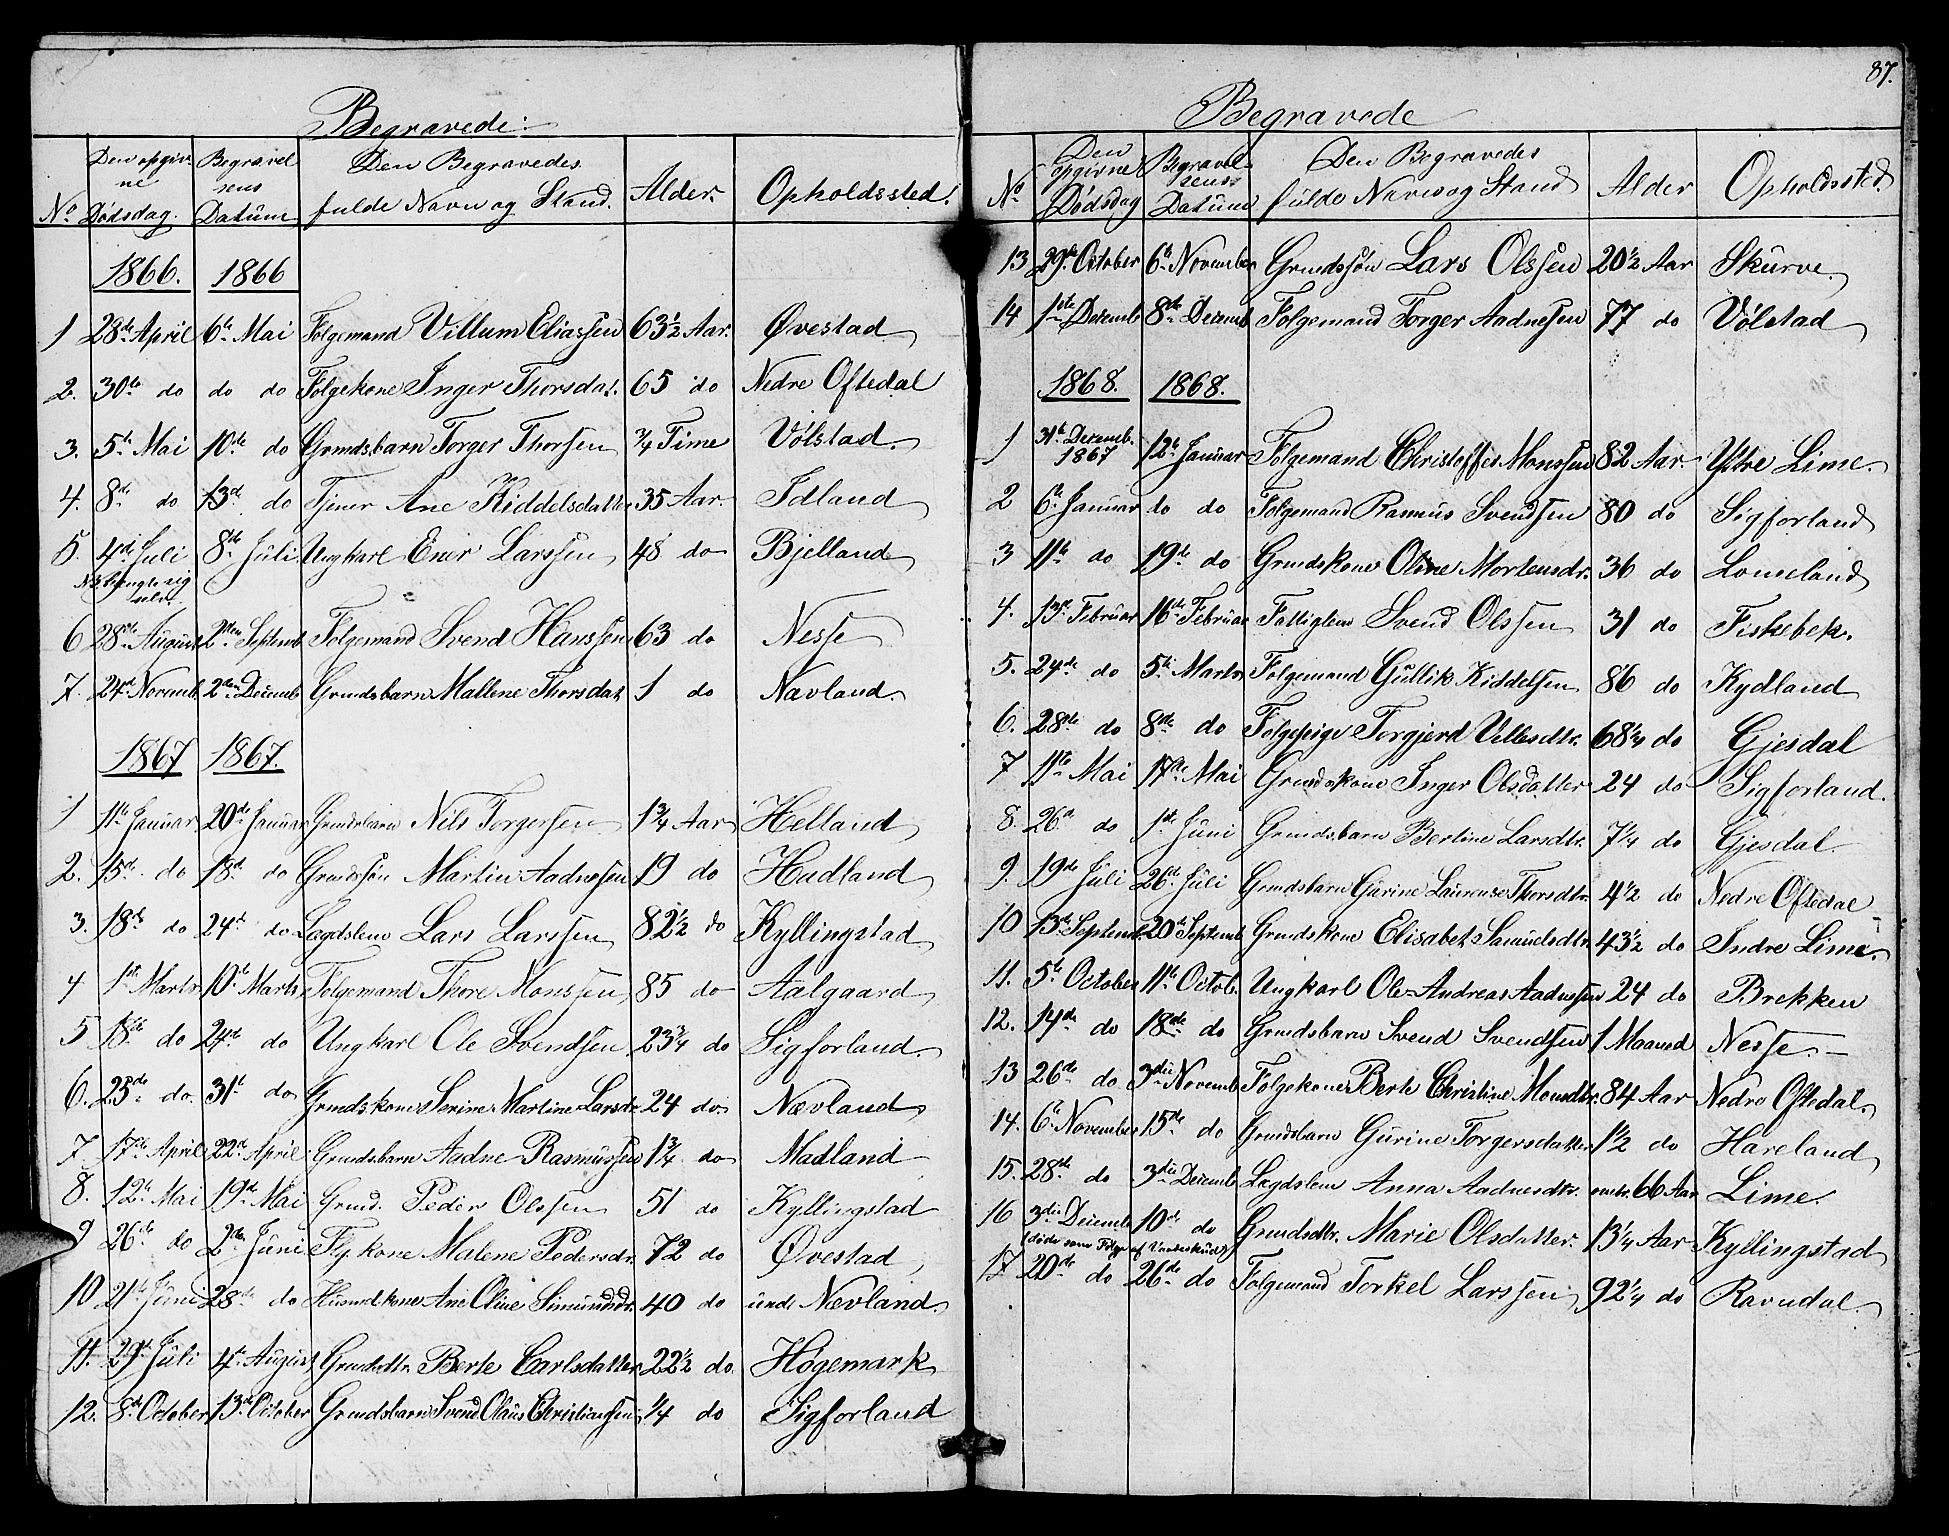 Begravede
No Den opgivne Dødsdag. Begravelsens Datum Den Begravedes fulde Navn og Stand. Alder. Opholdssted.
1866. 1866
1 28de April 6te Mai Folgemand Villum Eliassen 63½ Aar. Øvestad
2. 30te do do do Folgekone Inger Thorsdat. 65 do Nedre Oftedal
3. 5te Mai 10de do Grmdsbarn Torger Thorsen ¾ Time Vølstad
4. 8de do 13de do Tjener Ane Kiddelsdatter 35 Aar. Idland
5. 4de Juli 8de Juli Ungkarl Ener Larssen 48 do Bjelland
NB hengte sig selv.
6 28de August 2den Septemb Folgemand Svend Hanssen 63 do Nesse
7. 24de Novemb. 2den Decemb Grmdsbarn Mallene Thorsdat. 1 do Nævland.
1867 1867.
1 11te Januar 20de Januar Grmdsbarn Nils Torgersen 1¾ Aar Helland
2. 15de do 18de do Grmdssøn Martin Aadnesen 19 do Hadland
3. 18de do 24de do Lægdslem Lars Larssen 82½ do Kyllingstad
4 1ste Marts 10de Marts Folgemand Thore Monssen 85 do Aalgaard
5 18de do 24de do Ungkarl Ole Svendsen 23¾ do Sigforland.
6. 25de do. 31te do Grmdskone Serine Martine Larsdr 24 do Nævland
7. 17de April 22de April Grmdsbarn Aadne Rasmussen 1¾ do Madland
8. 12te Mai 19de Mai Grmd. Peder Olssen 51 do Kyllingstad
9 26de do 2den Juni Flgkone Malene Pedersdr. 72 do Øvestad
10 21de Juni 28de do Husmdkone Ane Oline Simundsdr. 40 do und. Nævland.
11. 29de Juli 4de August Grmdsdtr. Berte Carlsdatter 22½ do. Høgemark
12. 8de October 13de October Grmdsbarn Svend Olaus Christiansen ¼ do Sigforland
87.
Begravede
No Den opgivne Dødsdag Begravelsens Datum Den Begravedes fulde Navn og Stand Alder Opholdssted.
13 29de October 6te November Grmdssøn Lars Olssen 20½ Aar Skurve.
14 1ste Decemb 8de Decemb Folgemand Torger Aadnesen 77 do Vølstad
1868. 1868.
1 31te Decemb. 1867 12te Januar Folgemand Christoffer Monssen 82 Aar. Ytre Lime.
2 6te Januar do do Folgemand Rasmus Svendsen 80 do Sigforland
3 11te do 19de do Grmdskone Oline Mortensdr. 36 do Lomeland
4. 13de Februar 16de Februar Fattiglem Svend Olssen 31 do Fiskebek.
5. 24de do 5te Marts Folgemand Gullik Kiddelsen 86 do Kydland
6. 28de do 8de do Folgepige Torgjerd Villesdtr. 68¼ do Gjesdal
7 11te Mai 17de Mai Grmdskone Inger Olsdatter 24 do Sigforland.
8. 26de do 1ste Juni Grmdsbarn Bertine Larsdtr. 7¼ do Gjesdal
9. 19de Juli 26de Juli Grmdsbarn Gurine Laurense Thorsdtr. 4½ do Nedre Oftedal
10 13de Septemb. 20de Septemb Grmdskone Elisabet Samuelsdtr. 43½ do Indre Lime.
11. 5te October 11te Octob. Ungkarl Ole Andreas Aadnesen 24 do Brekken
12. 14de do 18de do Grmdsbarn Svend Svendsen 1 Maaned Nesse.
13 26de do 3die Novemb Folgekone Berte Christine Monsdtr. 84 Aar Nedre Oftedal.
14. 6te November 15de do Grmdsbarn Gurine Torgersdatter 1½ do Hareland
15. 28de do 3die Decemb Lægdslem Anna Aadnesdtr. omtr. 66 Aar Lime.
16 3die Decemb 10de do Grmdsdtr. Marie Olsdatter. 13¼ Aar Kyllingstad
(døde som Følge af Vandskud)
17 20de do 26de do Folgemand Torkel Larssen 92¼ do Ravndal.